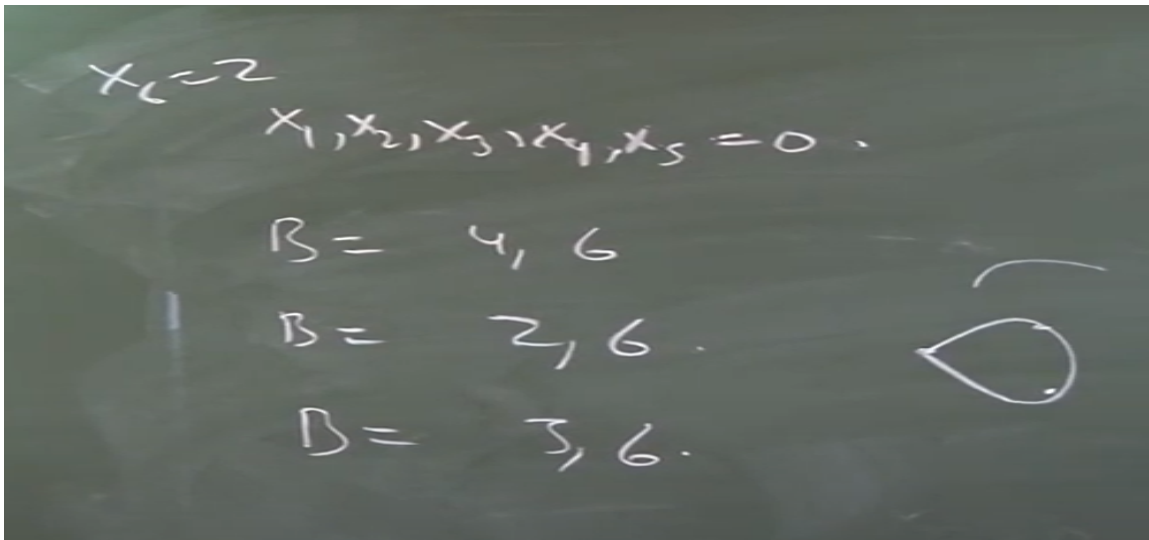 x₆=2
x₁,x₂,x₃,x₄,x₅=0.
B= 4, 6
B= 2, 6.
B= 3, 6.